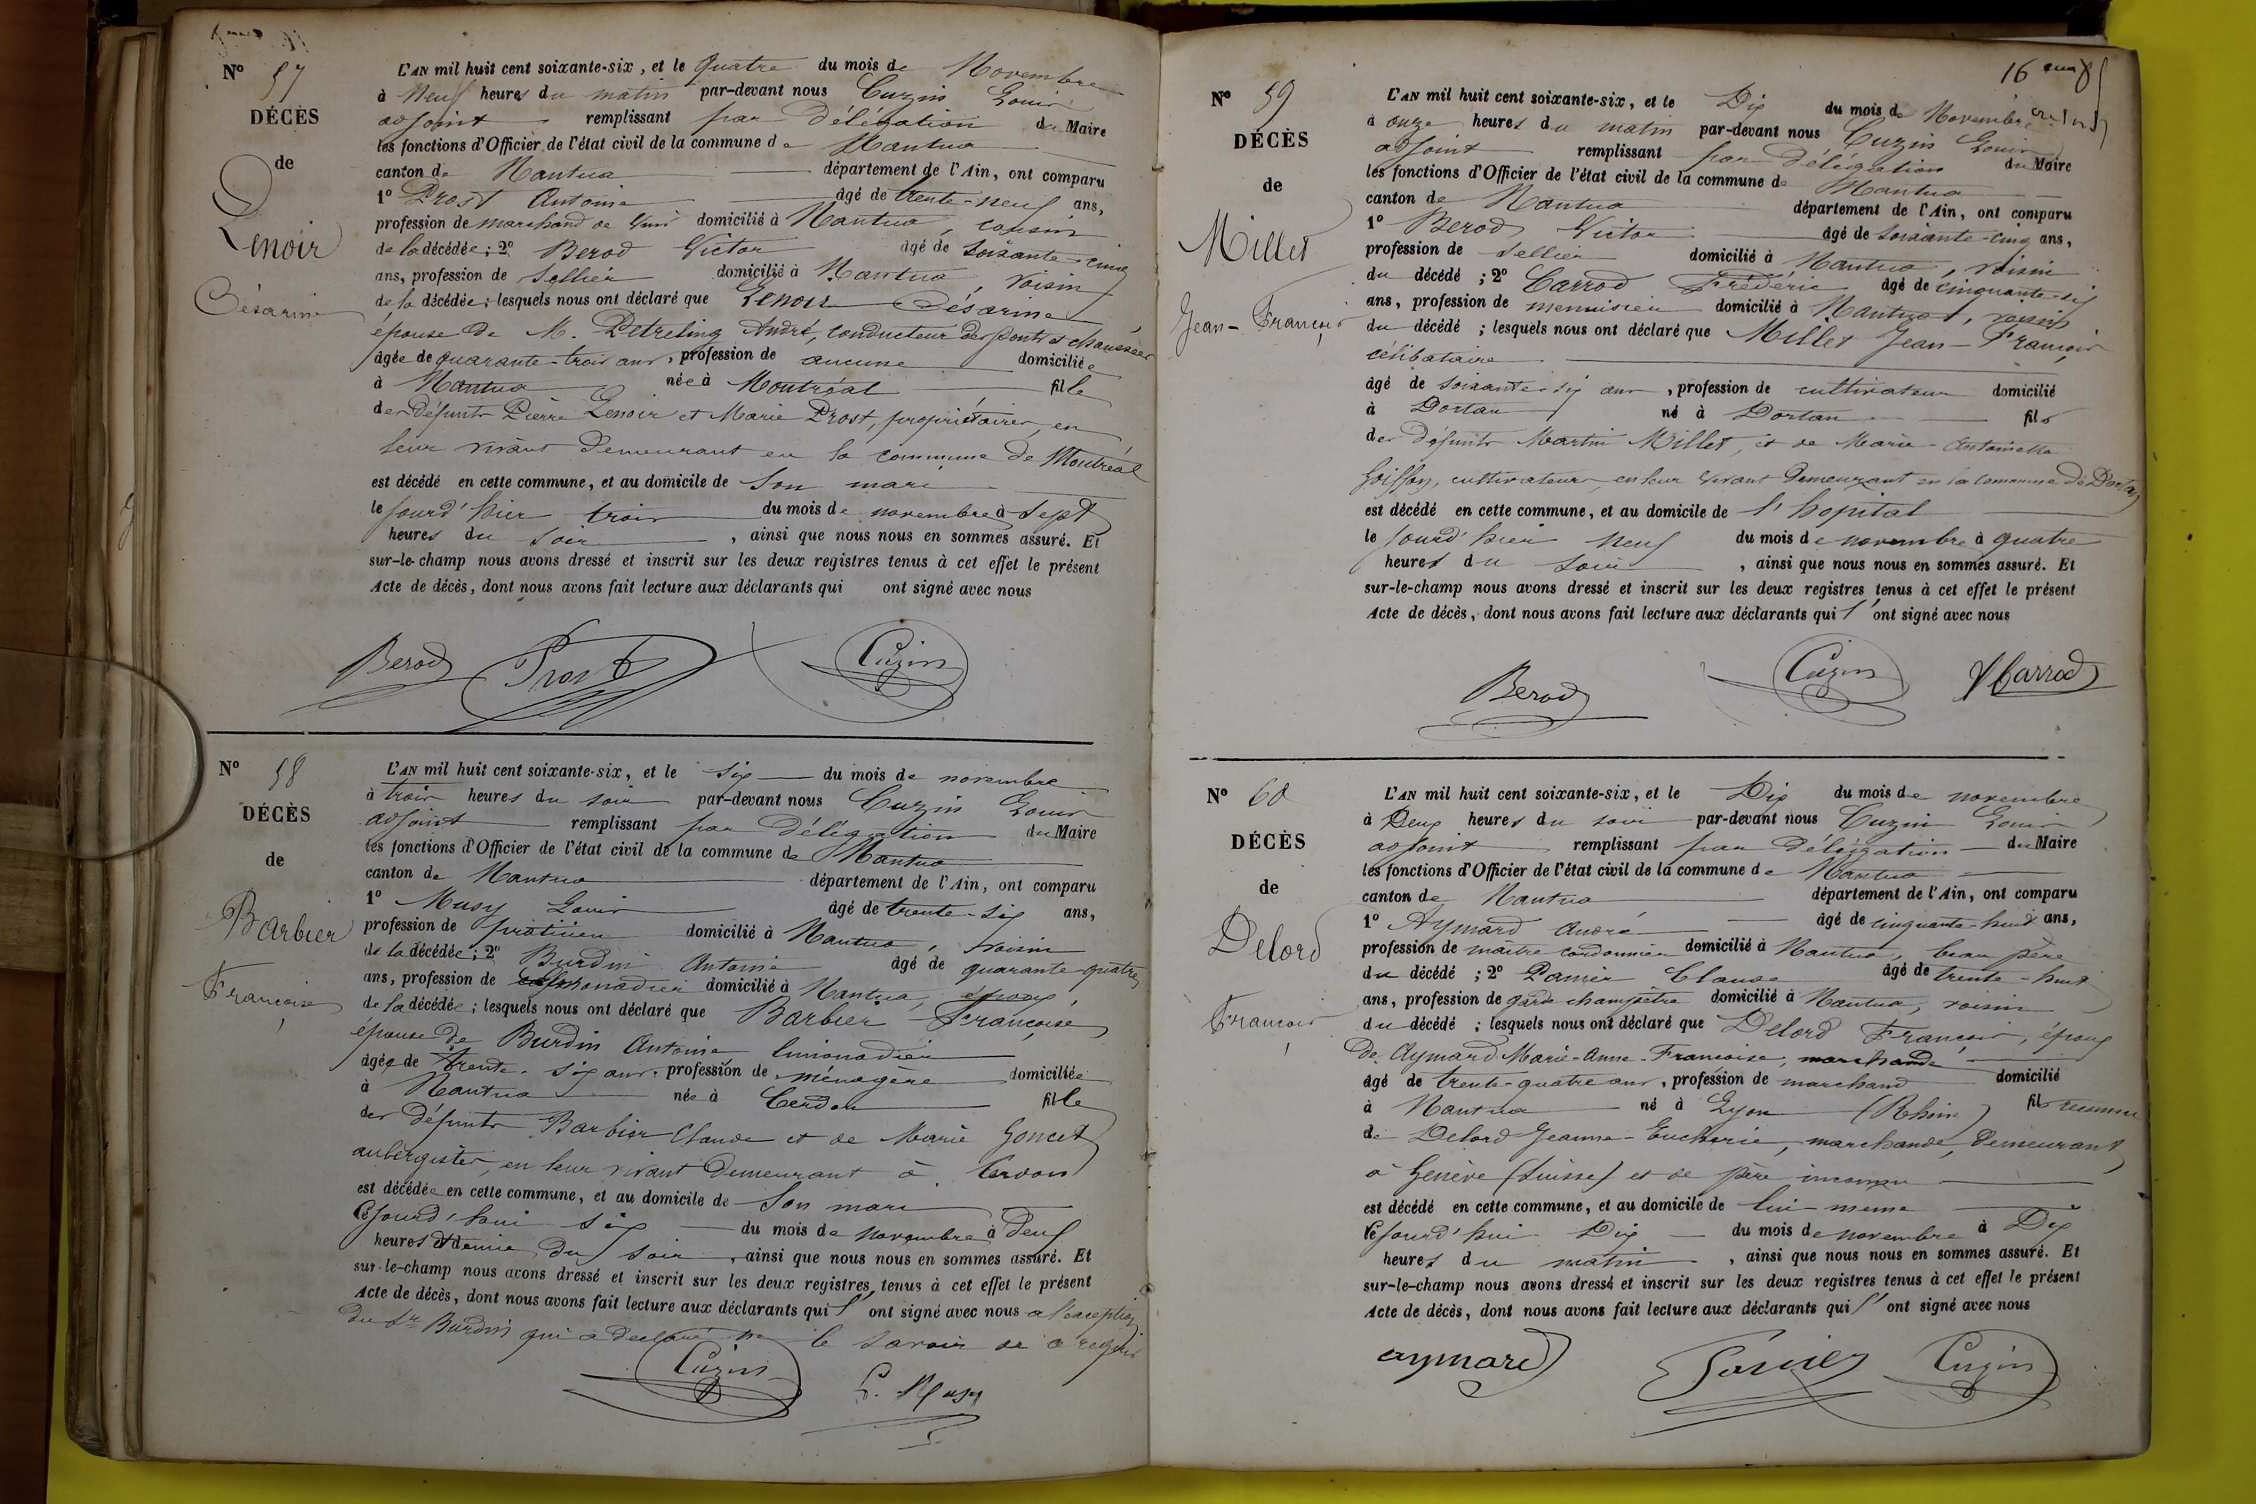 N° 57
DÉCÈS
de
Lenoir
Césarine
L'AN mil huit cent soixante-six, et le quatre du mois de Novembre
à Neuf heures du matin par-devant nous Cuzin Louis
adjoint remplissant par délégation du Maire
les fonctions d'Officier de l'état civil de la commune de Nantua
canton de Nantua département de l'Ain, ont comparu
1° Prost Antoine âgé de trente-neuf ans,
profession de marchand de vins domicilié à Nantua, cousin
de la décédée; 2° Berod Victor âgé de soixante-cinq
ans, profession de sellier domicilié à Nantua, voisin
de la décédée; lesquels nous ont déclaré que Lenoir Césarine
épouse de M. Petreling André, conducteur des ponts et chaussées
âgée de quarante-trois ans, profession de aucune domiciliée
à Nantua née à Montréal fille
des défunts Pierre Lenoir et Marie Prost, propriétaires, en
leur vivant demeurant en la commune de Montréal
est décédé en cette commune, et au domicile de son mari
le jourd'hier trois du mois de novembre à sept
heures du soir, ainsi que nous nous en sommes assuré. Et
sur-le-champ nous avons dressé et inscrit sur les deux registres tenus à cet effet le présent
Acte de décès, dont nous avons fait lecture aux déclarants qui ont signé avec nous
Berod Prost Cuzin
N° 58
DÉCÈS
de
Barbier
Françoise
L'AN mil huit cent soixante-six, et le six du mois de novembre
à trois heures du soir par-devant nous Cuzin Louis
adjoint remplissant par délégation du Maire
les fonctions d'Officier de l'état civil de la commune de Nantua
canton de Nantua département de l'Ain, ont comparu
1° Musy Louis âgé de trente-six ans,
profession de domicilié à Nantua, voisin
de la décédée; 2° Burdin Antoine âgé de quarante-quatre
ans, profession de limonadier domicilié à Nantua, époux
de la décédée; lesquels nous ont déclaré que Barbier Françoise
épouse de Burdin Antoine limonadier
âgée de trente-six ans, profession de ménagère domiciliée
à Nantua née à Cerdon fille
des défunts Barbier Claude et de Marie Goncet
aubergistes, en leur vivant demeurant à Cerdon
est décédée en cette commune, et au domicile de son mari
Cejourd'hui six du mois de novembre à deux
heures et demie du soir, ainsi que nous nous en sommes assuré. Et
sur-le-champ nous avons dressé et inscrit sur les deux registres tenus à cet effet le présent
Acte de décès, dont nous avons fait lecture aux déclarants qui l'ont signé avec nous a l'exception
du Sr Burdin qui a declaré ne le savoir de ce requis
Cuzin L. Musy
16
N° 59
DÉCÈS
de
Millet
Jean-François
L'AN mil huit cent soixante-six, et le Dix du mois de Novembre
à onze heures du matin par-devant nous Cuzin Louis
adjoint remplissant par délégation du Maire
les fonctions d'Officier de l'état civil de la commune de Nantua
canton de Nantua département de l'Ain, ont comparu
1° Berod Victor âgé de soixante-cinq ans,
profession de sellier domicilié à Nantua, voisin
du décédé; 2° Carrod Frédéric âgé de cinquante-six
ans, profession de menuisier domicilié à Nantua, voisin
du décédé; lesquels nous ont déclaré que Millet Jean-François
célibataire
âgé de soixante-six ans, profession de cultivateur domicilié
à Dortan né à Dortan fils
des défunts Martin Millet, et de Marie-Antoinette
Goiffon, cultivateurs, en leur vivant demeurant en la commune de Dortan
est décédé en cette commune, et au domicile de l'hopital
le jourd'hier neuf du mois de novembre à quatre
heures du soir, ainsi que nous nous en sommes assuré. Et
sur-le-champ nous avons dressé et inscrit sur les deux registres tenus à cet effet le présent
Acte de décès, dont nous avons fait lecture aux déclarants qui l'ont signé avec nous
Berod Cuzin Carrod
N° 60
DÉCÈS
de
Delord
François
L'AN mil huit cent soixante-six, et le Dix du mois de novembre
à Deux heures du soir par-devant nous Cuzin Louis
adjoint remplissant par délégation du Maire
les fonctions d'Officier de l'état civil de la commune de Nantua
canton de Nantua département de l'Ain, ont comparu
1° Aymard André âgé de cinquante-huit ans,
profession de maître cordonnier domicilié à Nantua, beau père
du décédé; 2° Panier Claude âgé de trente-huit
ans, profession de garde champêtre domicilié à Nantua, voisin
du décédé; lesquels nous ont déclaré que Delord François, époux
de Aymard Marie-Anne-Françoise, marchande
âgé de trente-quatre ans, profession de marchand domicilié
à Nantua né à Lyon (Rhône) fils reconnu
de Delord Jeanne-Eucherie, marchande, demeurant
à Genève (Suisse) et de père inconnu
est décédé en cette commune, et au domicile de lui-meme
Cejourd'hui Dix du mois de novembre à Dix
heures du matin, ainsi que nous nous en sommes assuré. Et
sur-le-champ nous avons dressé et inscrit sur les deux registres tenus à cet effet le présent
Acte de décès, dont nous avons fait lecture aux déclarants qui l'ont signé avec nous
aymard Panier Cuzin